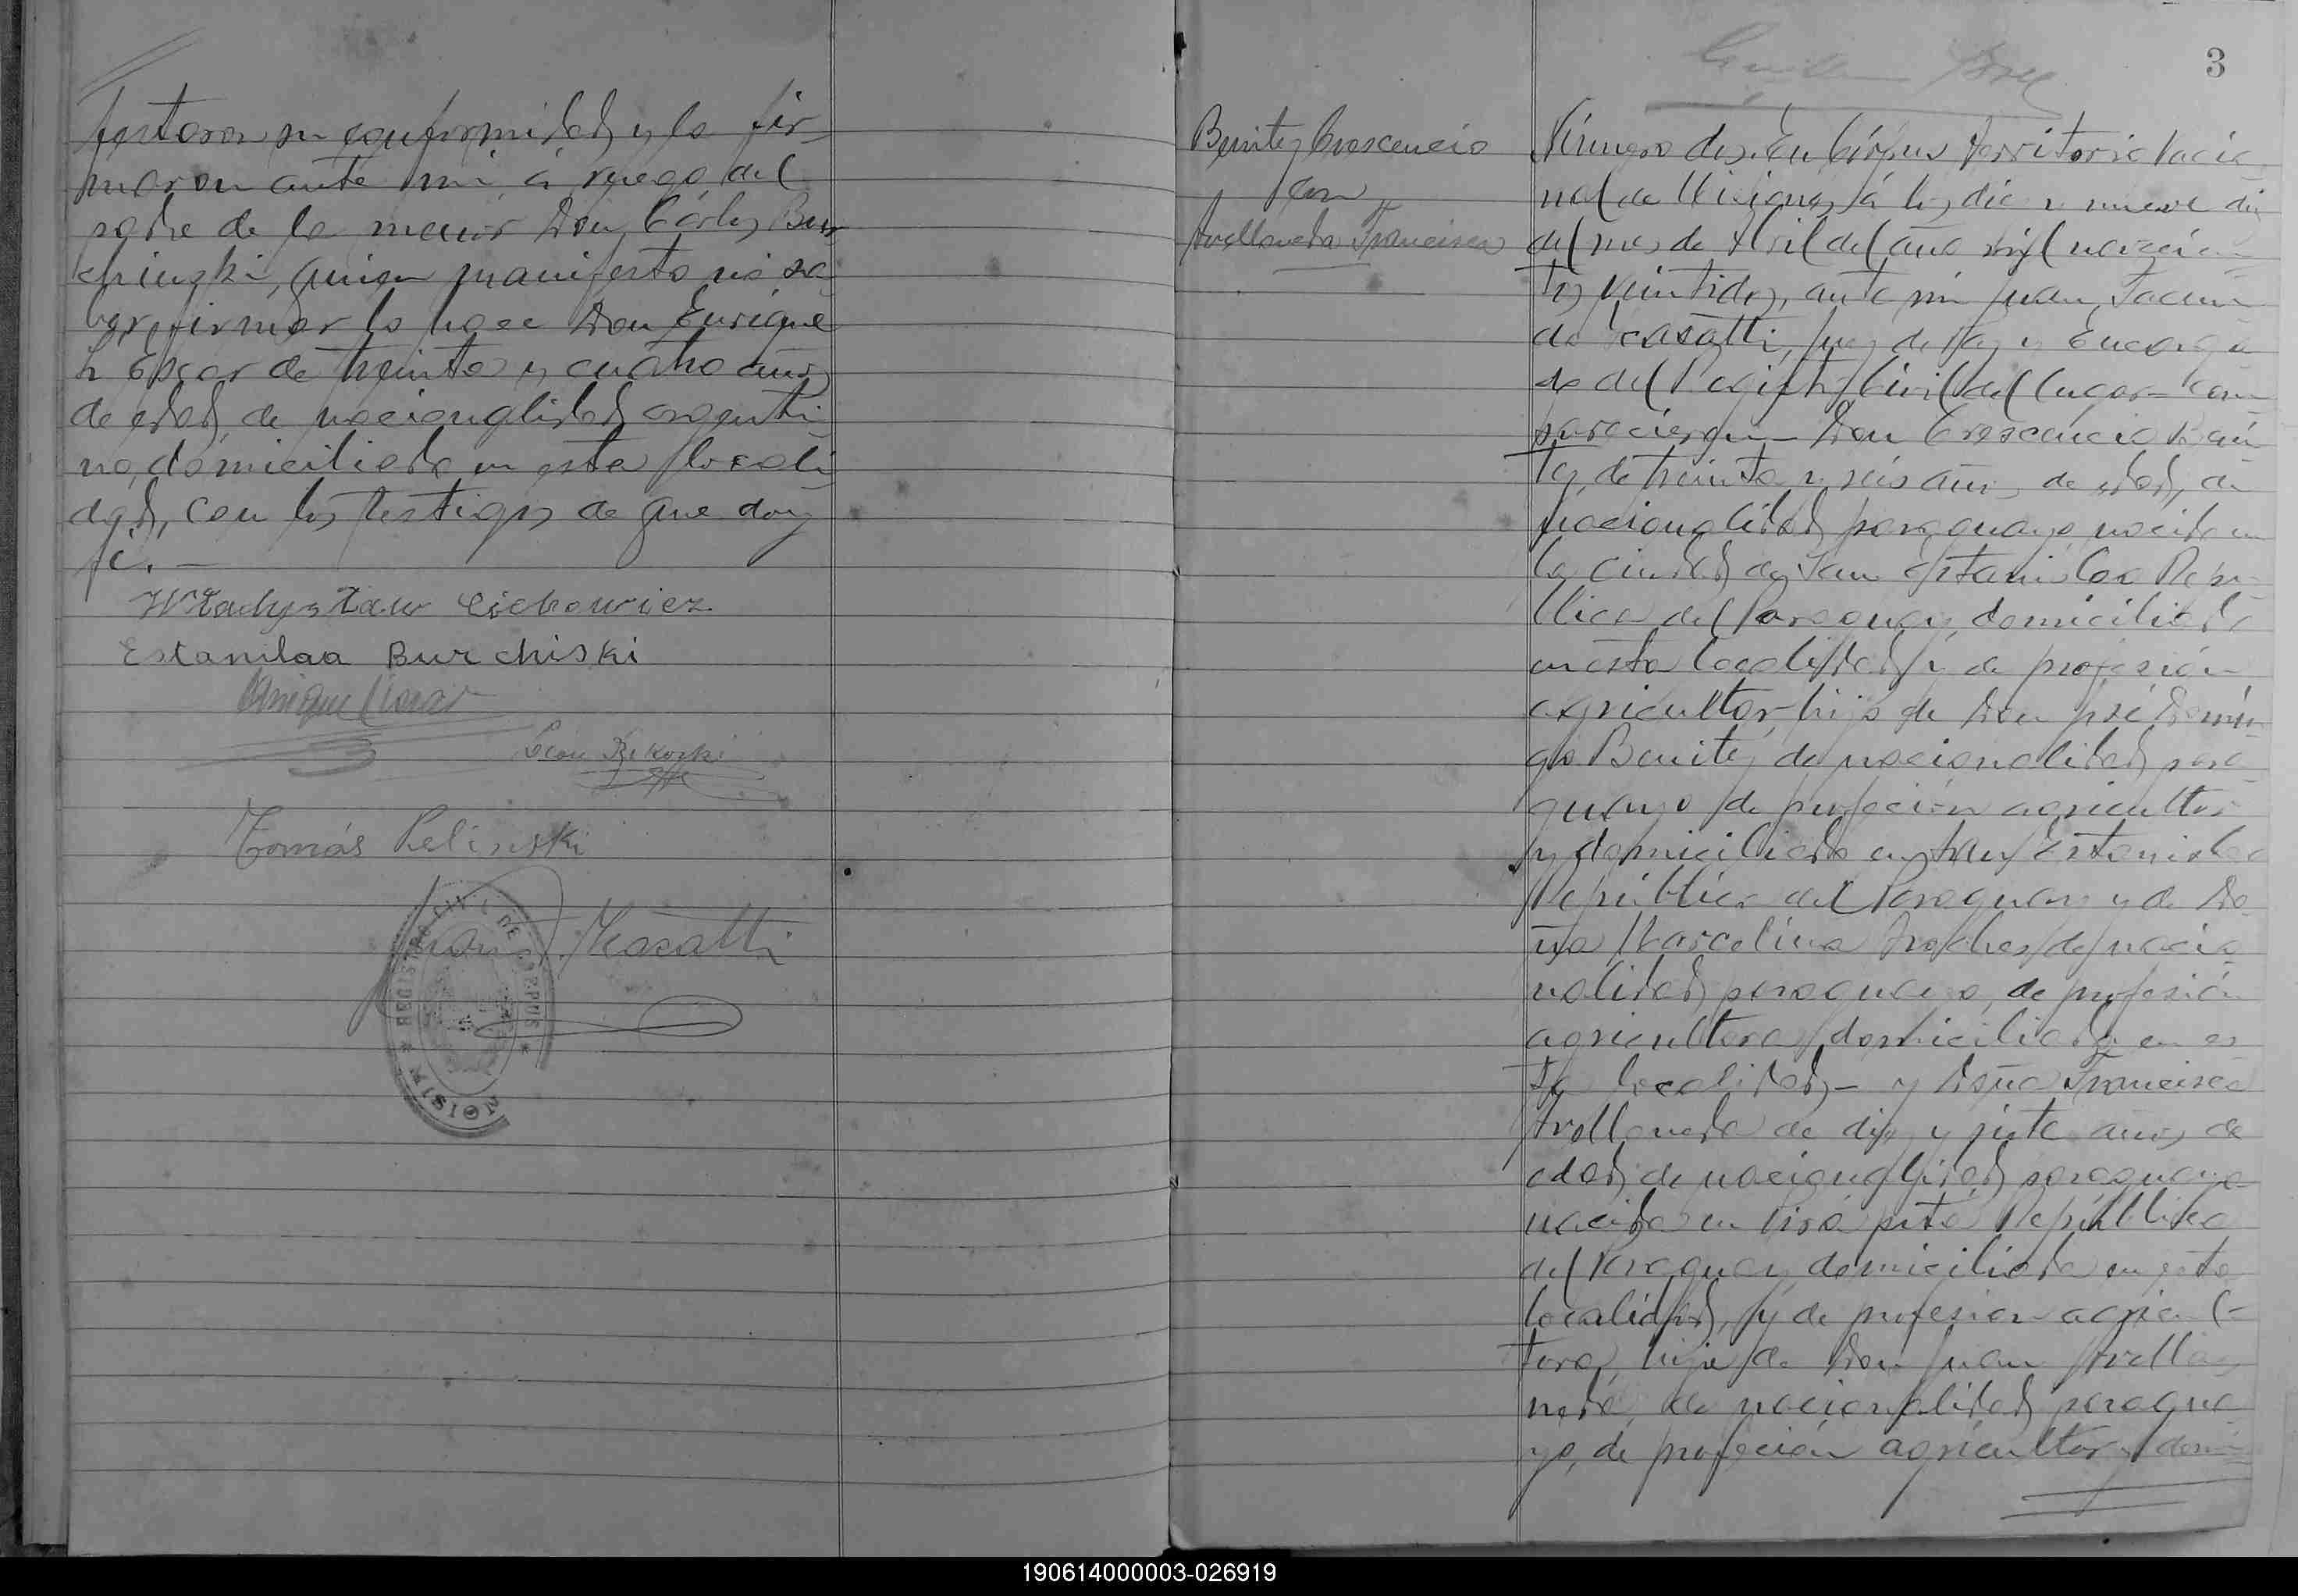 festaron su conformidad y la fir-
maron ante mi á ruego del
padre de la menor Don Cárlos Bur
chinski, quien manifesto no sa
ber firmar lo hace Don Enrique
L Escar de treinta y cuatro años
de edad, de nacionalidad argenti
no, domiciliado en esta locali
dad, con los testigos de que doy
fé. —
Władysław Cichowicz
Estanilaa Burchiski
Enrique Escar
Leon
Tomás Pelinski
Juan F Casatti
REGISTRO CIVIL DE CORPUS * MISIONES *
3
Benitez Crescencio
con
Avellaneda Francisca
Número dos. En Córpus Territorio Nacio
nal de Misiones, á los diez y nueve dias
del mes de Abril del año mil novecien-
tos veintidos, ante mi Juan Facun
do Casatti, Juez de Paz y Encarga
do del Registro Civil del lugar= com
parecieron — Don Crescencio Beni
tez, de treinta y seis años de edad, de
nacionalidad paraguayo, nacido en
la ciudad de San Estanislao Repu-
blica del Paraguay, domiciliado
en esta localidad y de profesión
agricultor, hijo de Don José Domin-
go Benitez de nacionalidad para-
guayo de profeción agricultor
y domiciliado en San Estanislao
República del Paraguay y de Do-
ña Marcelina de nacio
nalidad paraguaya, de profesión
agricultora domiciliada en es
ta localidad — y Doña Francisca
Avellaneda de diez y siete años de
edad, de nacionalidad paraguaya
nacida en Pirá pitá República
del Paraguay domiciliada en esta
localidad, y de profesion agricul-
tora, hija de Don Juan Avella-
neda, de nacionalidad paragua
yo, de profeción agricultor, domi
190614000003-026919